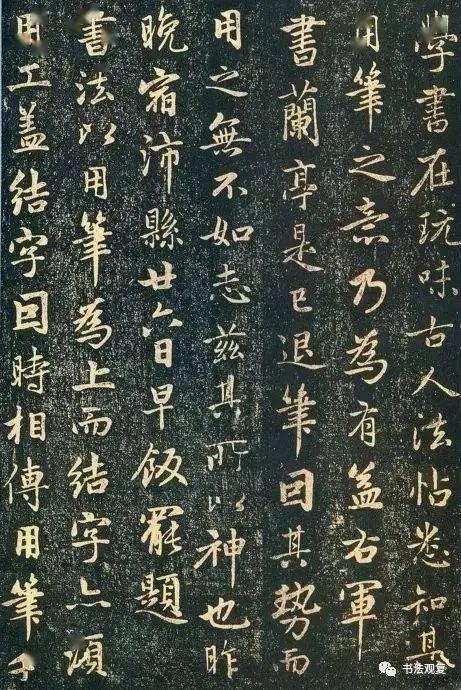 學書在玩味古人法帖悉知其
用筆之意乃為有益右軍
書蘭亭是已退筆因其勢而
用之無不如志茲其所以神也昨
晚宿沛縣廿六日早飯罷題
書法以用筆為上而結字亦須
用工盖結字因時相傳用筆千
书法观复